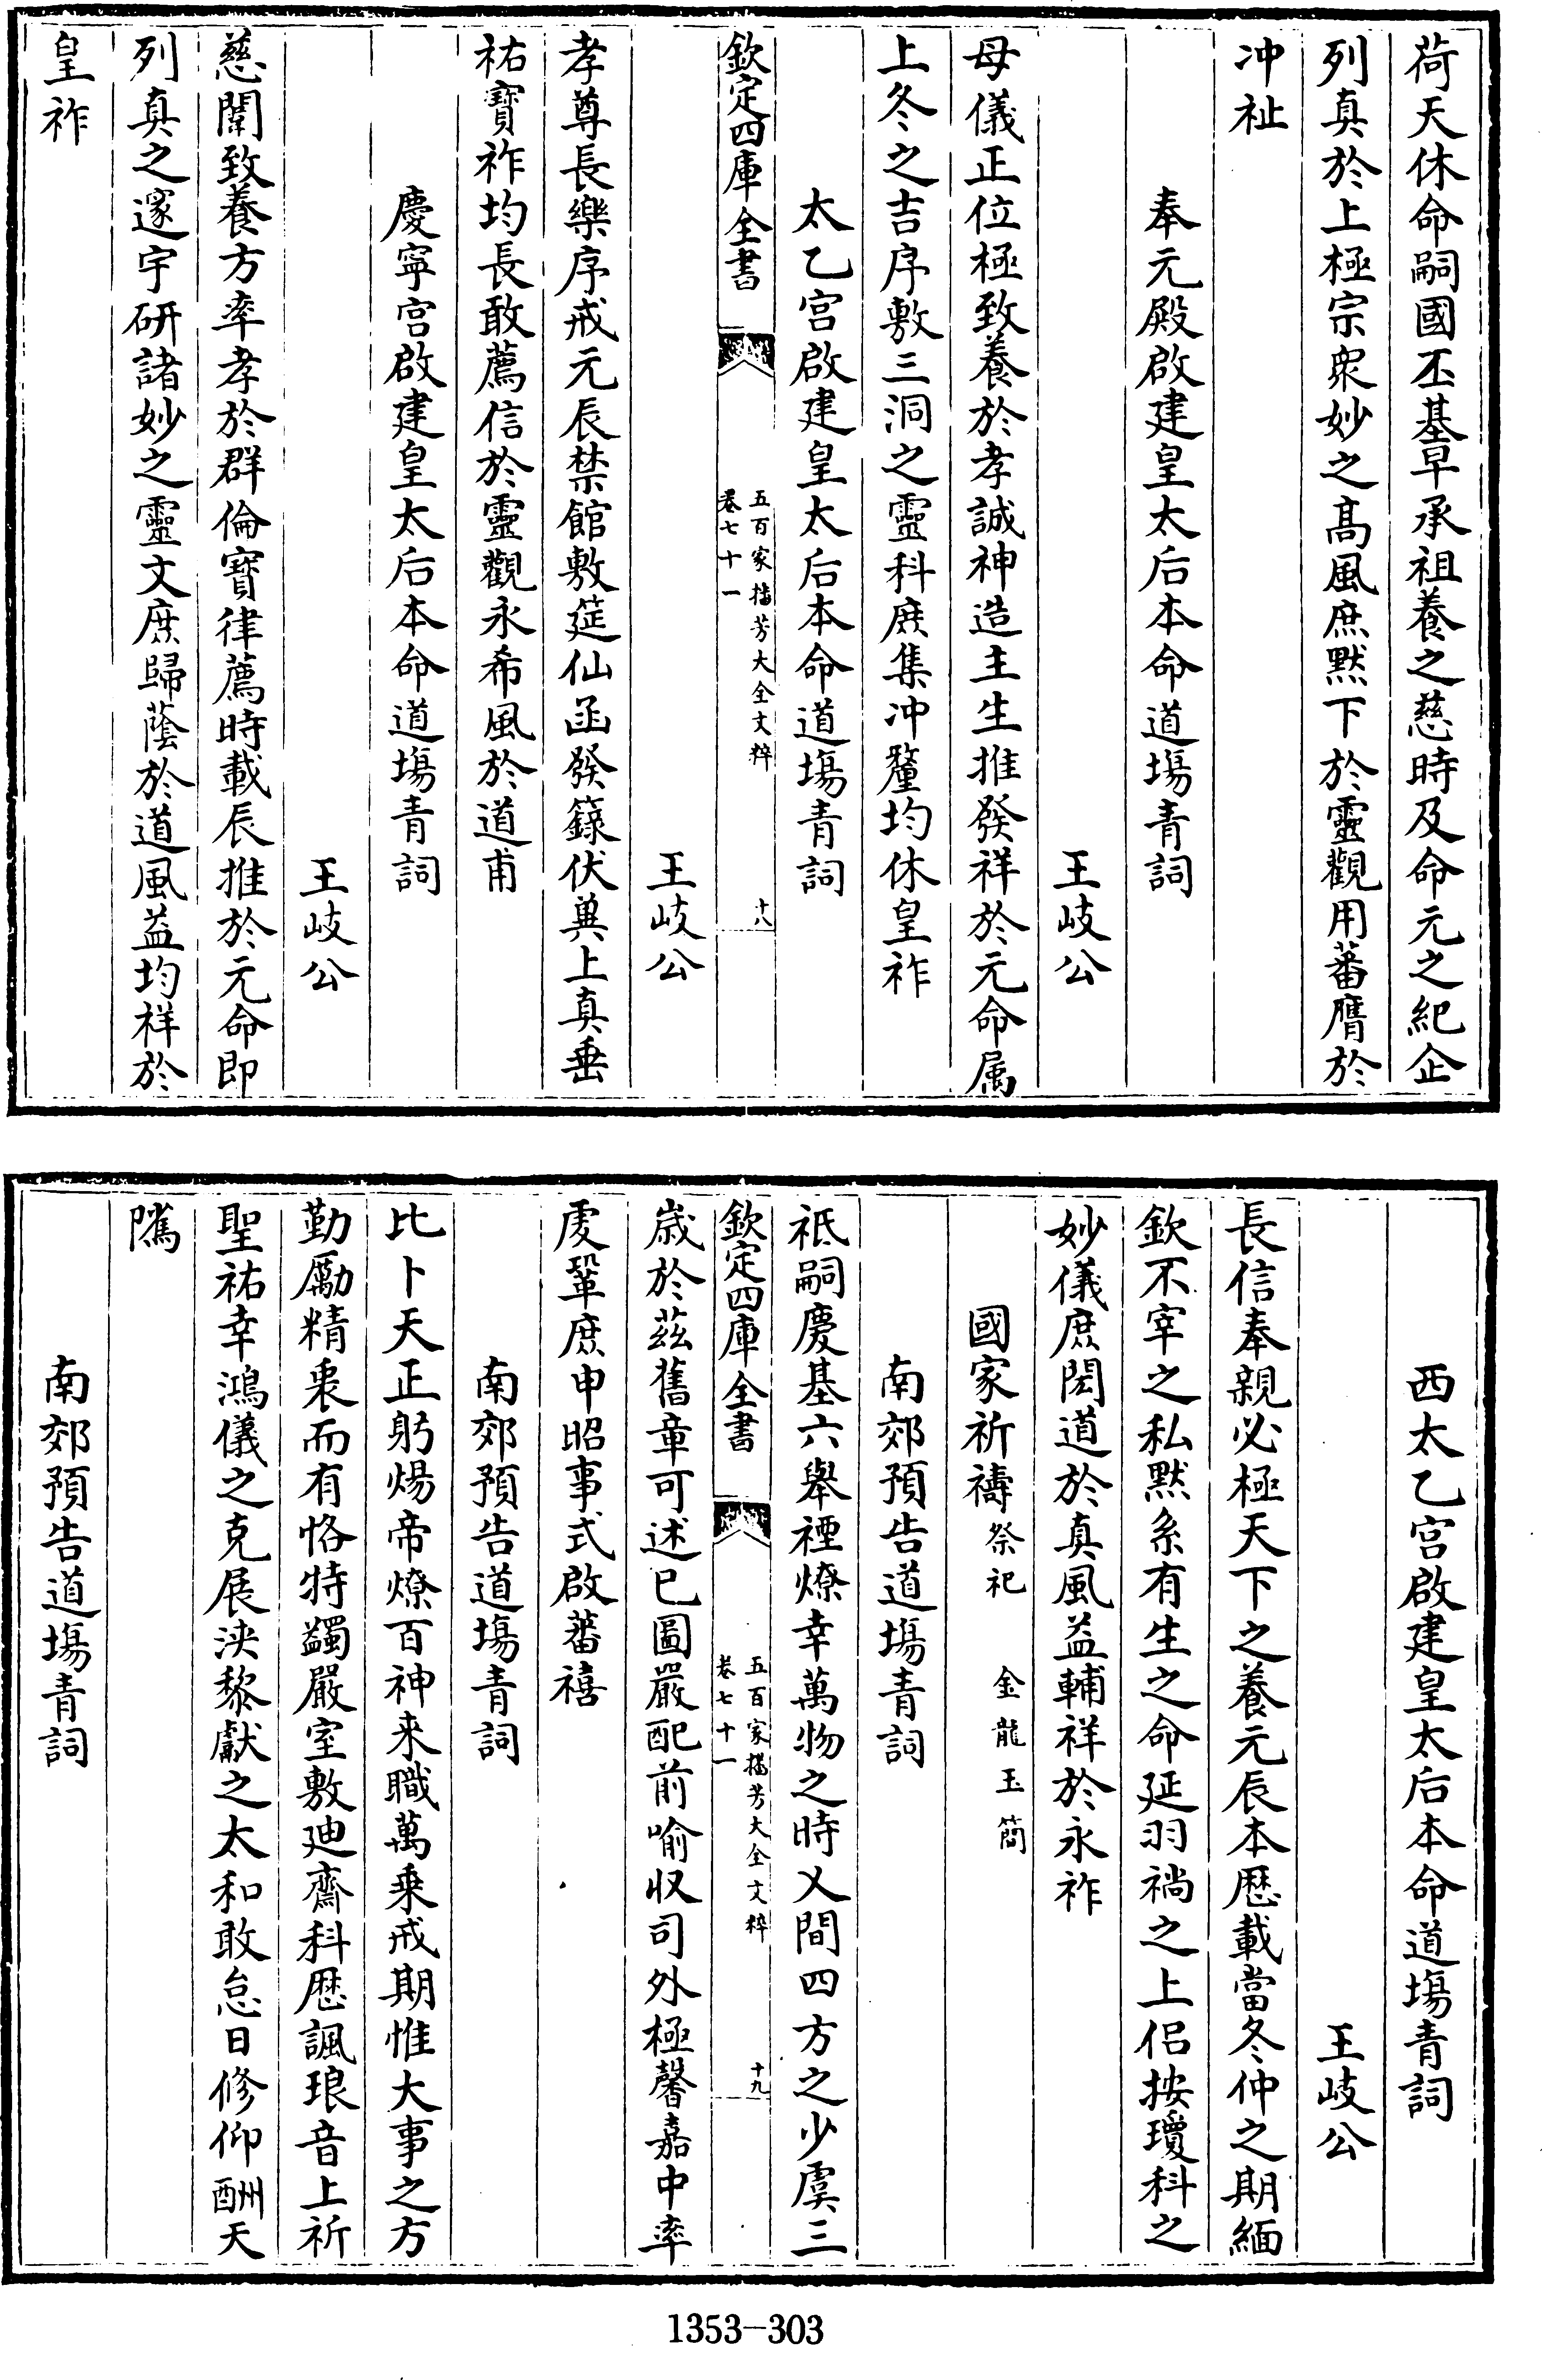 荷天休命嗣國丕基早承祖養之慈時及命元之紀企
列真於上極宗衆妙之髙風庶默下於靈觀用蕃膺於
冲祉
奉元殿啟建皇太后本命道塲青詞
王岐公
母儀正位極致養於孝誠神造主生推發祥於元命属
上冬之吉序敷三洞之靈科庶集冲釐均休皇祚
太乙宫啟建皇太后本命道塲青詞
欽定四庫全書
五百家播芳大全文粹
卷七十一
十八
王岐公
孝尊長樂序戒元辰禁館敷筵仙函發籙伏兾上真垂
祐寳祚均長敢薦信於靈觀永希風於道甫
慶寜宫啟建皇太后本命道塲青詞
王岐公
慈闈致養方率孝於群倫寳律薦時載辰推於元命即
列真之邃宇研諸妙之靈文庶歸蔭於道風益均祥於
皇祚
西太乙宫啟建皇太后本命道塲青詞
王岐公
長信奉親必極天下之養元辰本厯載當冬仲之期緬
欽不宰之私默系有生之命延羽褵之上侣按瓊科之
妙儀庶閎道於真風益輔祥於永祚
國家祈禱祭祀 金龍玉簡
南郊預告道塲青詞
祗嗣慶基六舉禋燎幸萬物之時乂間四方之少虞三
欽定四庫全書
五百家播芳大全文粹
卷七十一
十九
歳於兹舊章可述已圖嚴配前喻収司外極馨嘉中率
虔鞏庶申昭事式啟蕃禧
南郊預告道塲青詞
比卜天正躬煬帝燎百神来職萬乗戒期惟大事之方
勤勵精衷而有恪特蠲嚴室敷廸齋科厯諷琅音上祈
聖祐幸鴻儀之克展浹黎獻之太和敢怠日修仰酬天
隲
南郊預告道塲青詞
1353-303